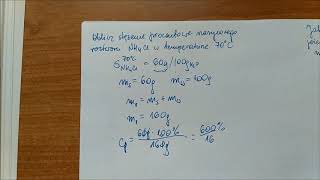 Oblicz stężenie procentowe nasyconego
roztworu NH₄Cl w temperaturze 70°C
70°C
S NH₄Cl = 60g/100g H₂O
mₛ = 60g m₀ = 100g
m₁ = mₛ + m₀
m₁ = 160g
Cp = 60g · 100% / 160g = 600% / 16